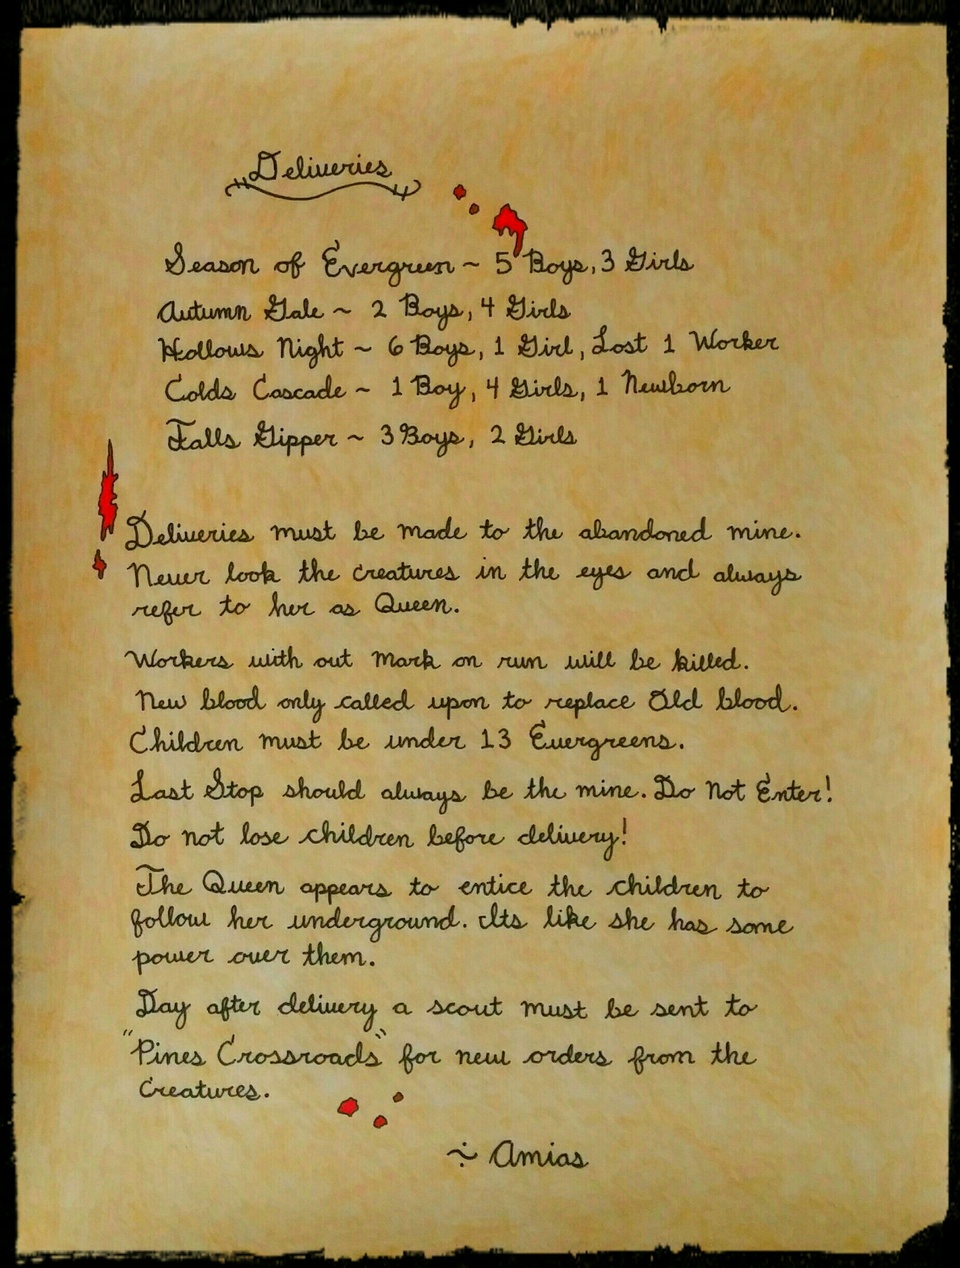 Deliveries
Season of Evergreen ~ 5 Boys, 3 Girls
Autumn Gale ~ 2 Boys, 4 Girls
Hollows Night ~ 6 Boys, 1 Girl, Lost 1 Worker
Colds Cascade ~ 1 Boy, 4 Girls, 1 Newborn
Falls Gipper ~ 3 Boys, 2 Girls
Deliveries must be made to the abandoned mine.
Never look the creatures in the eyes and always
refer to her as Queen.
Workers with out mark on run will be killed.
New blood only called upon to replace Old blood.
Children must be under 13 Evergreens.
Last Stop should always be the mine. Do Not Enter!
Do not lose children before delivery!
The Queen appears to entice the children to
follow her underground. Its like she has some
power over them.
Day after delivery a scout must be sent to
"Pines Crossroads" for new orders from the
Creatures.
~ Amias